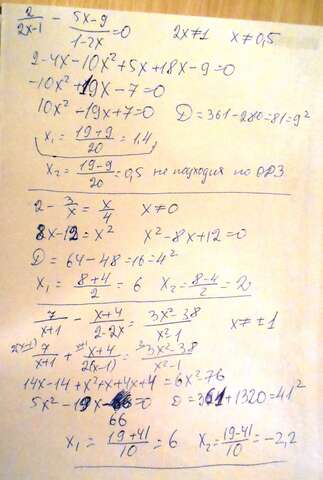 2/(2x-1) - (5x-9)/(1-2x) = 0 2x≠1 x≠0,5
2-4x-10x²+5x+18x-9=0
-10x²+19x-7=0
10x²-19x+7=0 D=361-280=81=9²
x₁=(19+9)/20=1,4
x₂=(19-9)/20=0,5 не подходит по ОДЗ
2-3/x=x/4 x≠0
8x-12=x² x²-8x+12=0
D=64-48=16=4²
x₁=(8+4)/2=6 x₂=(8-4)/2=2
7/(x+1) - (x+4)/(2-2x) = (3x²-38)/(x²-1) x≠±1
2(x-1) 7/(x+1) + (x+4)/(2(x-1)) = (3x²-38)/(x²-1)
14x-14+x²+x+4x+4=6x²-76
5x²-19x-66=0 D=361+1320=41²
66
x₁=(19+41)/10=6 x₂=(19-41)/10=-2,2